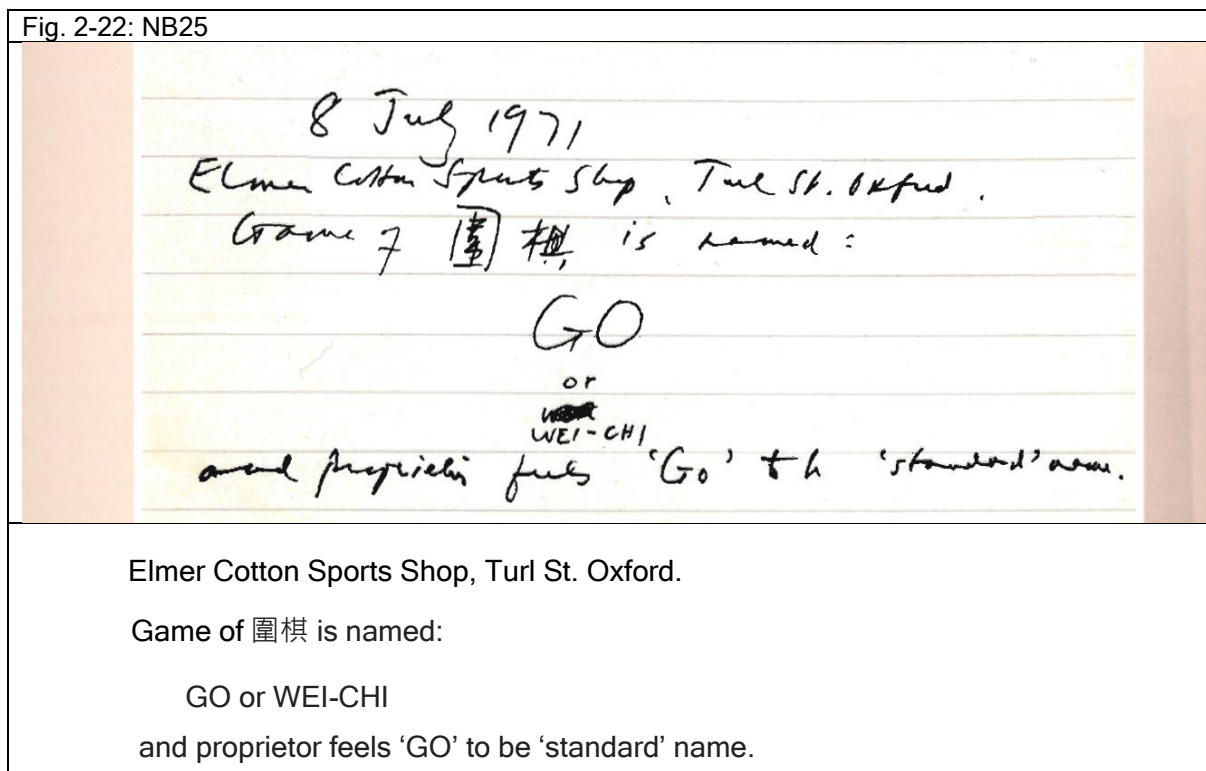 Fig. 2-22: NB25
8 July 1971
Elmer Cotton Sports Shop, Turl St. Oxford.
Game of 圍棋 is named:
GO
or
WEI-CHI
and proprietor feels 'Go' to be 'standard' name.
Elmer Cotton Sports Shop, Turl St. Oxford.
Game of 圍棋 is named:
GO or WEI-CHI
and proprietor feels ‘GO’ to be ‘standard’ name.